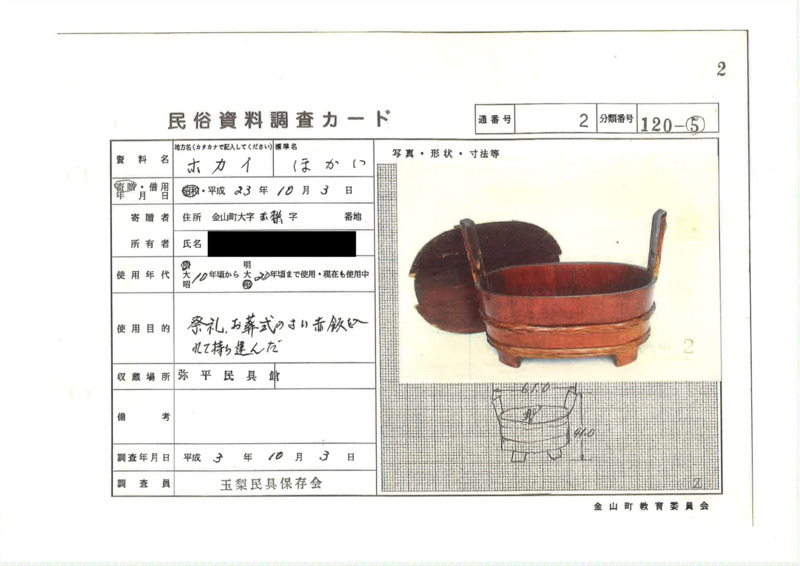 2
民俗資料調査カード
通番号 2 分類番号 120-⑤
資料名 地方名(カタカナで記入してください) ホカイ 標準名 ほかい
写真・形状・寸法等
寄贈・借用年月日 昭和・平成 23年10月3日
寄贈者 住所 金山町大字玉梨字 番地
所有者 氏名
使用年代 明大昭10年頃から明大昭20年頃まで使用・現在も使用中
使用目的 祭礼、お葬式のさい赤飯を入
れて持ち運んだ
収蔵場所 弥平民具館
備考
調査年月日 平成3年10月3日
調査員 玉梨民具保存会
2
61.0
41.0
2
金山町教育委員会